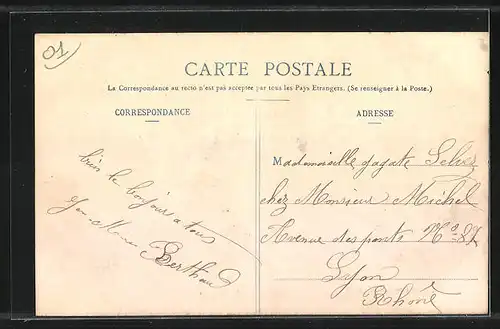 01
CARTE POSTALE
La Correspondance au recto n'est pas acceptée par tous les Pays Etrangers. (Se renseigner à la Poste.)
CORRESPONDANCE
bien le bonjour a tous
Berthe
ADRESSE
Mademoiselle gagate
chez Monsieur Michel
Avenue des ponts No 87
Lyon
Rhône